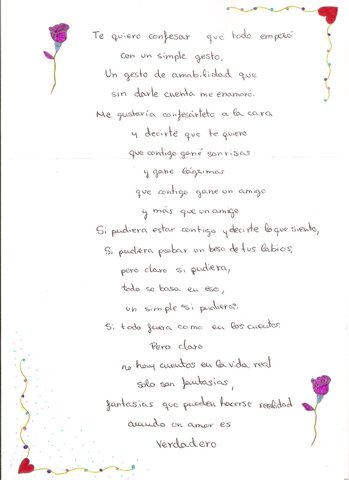 Te quiero confesar que todo empezó
con un simple gesto,
Un gesto de amabilidad que
sin darle cuenta me enamoró.
Me gustaría confesárteto a la cara
y decirte que te quiero
que contigo gané sonrisas
y gane lágrimas
que contigo gane un amigo
y más que un amigo
Si pudiera estar contigo y decirte lo que siento,
Si pudiera probar un beso de tus labios,
pero claro si pudiera,
todo se basa en eso,
un simple "si pudiera".
Si todo fuera como en los cuentos.
Pero claro
no hay cuentos en la vida real
solo son fantasías,
fantasías que pueden hacerse realidad
cuando un amor es
verdadero